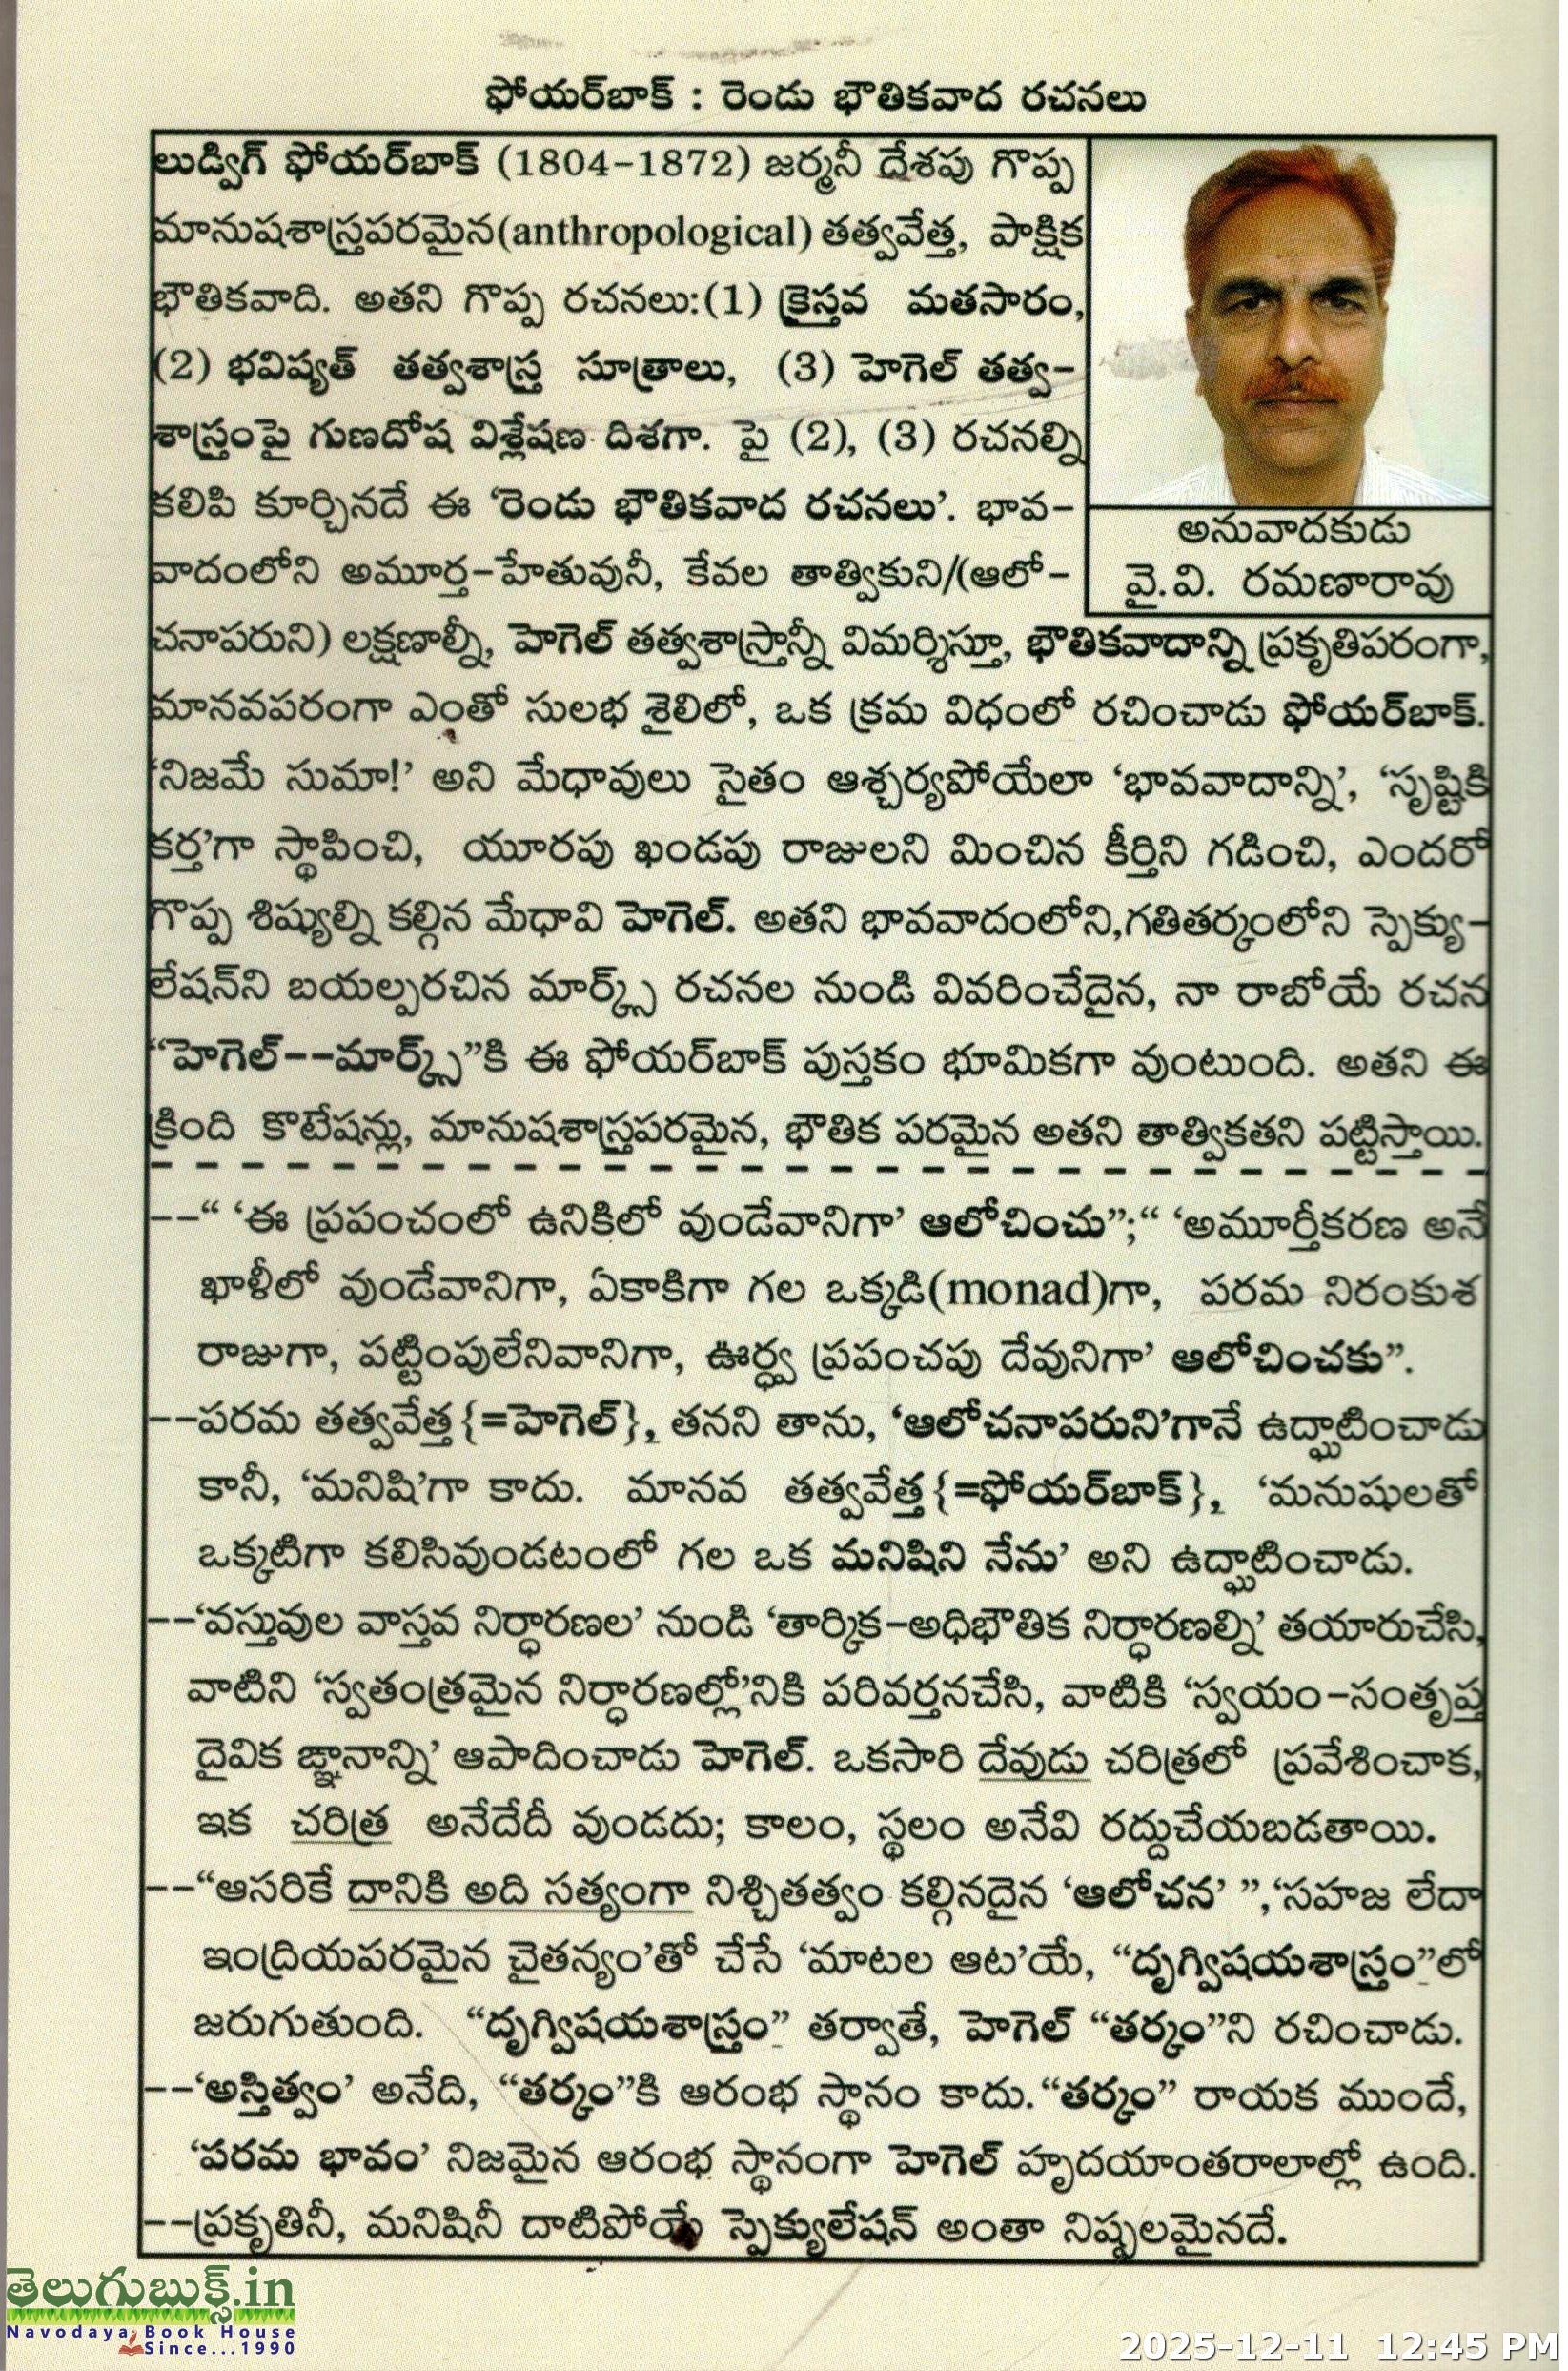 ఫోయర్‌బాక్ : రెండు భౌతికవాద రచనలు
లుడ్విగ్ ఫోయర్‌బాక్ (1804-1872) జర్మనీ దేశపు గొప్ప
మానుషశాస్త్రపరమైన(anthropological) తత్వవేత్త, పాక్షిక
భౌతికవాది. అతని గొప్ప రచనలు:(1) క్రైస్తవ మతసారం,
(2) భవిష్యత్ తత్వశాస్త్ర సూత్రాలు, (3) హెగెల్ తత్వ-
శాస్త్రంపై గుణదోష విశ్లేషణ దిశగా. పై (2), (3) రచనల్ని
కలిపి కూర్చినదే ఈ ‘రెండు భౌతికవాద రచనలు’. భావ-
వాదంలోని అమూర్త-హేతువునీ, కేవల తాత్వికుని/(ఆలో-
అనువాదకుడు
వై.వి. రమణారావు
చనాపరుని) లక్షణాల్నీ, హెగెల్ తత్వశాస్త్రాన్నీ విమర్శిస్తూ, భౌతికవాదాన్ని ప్రకృతిపరంగా,
మానవపరంగా ఎంతో సులభ శైలిలో, ఒక క్రమ విధంలో రచించాడు ఫోయర్‌బాక్.
‘నిజమే సుమా!’ అని మేధావులు సైతం ఆశ్చర్యపోయేలా ‘భావవాదాన్ని’, ‘సృష్టికి
కర్త’గా స్థాపించి, యూరపు ఖండపు రాజులని మించిన కీర్తిని గడించి, ఎందరో
గొప్ప శిష్యుల్ని కల్గిన మేధావి హెగెల్. అతని భావవాదంలోని,గతితర్కంలోని స్పెక్యు-
లేషన్‌ని బయల్పరచిన మార్క్స్ రచనల నుండి వివరించేదైన, నా రాబోయే రచన
“హెగెల్--మార్క్స్”కి ఈ ఫోయర్‌బాక్ పుస్తకం భూమికగా వుంటుంది. అతని ఈ
క్రింది కొటేషన్లు, మానుషశాస్త్రపరమైన, భౌతిక పరమైన అతని తాత్వికతని పట్టిస్తాయి.
--“ ‘ఈ ప్రపంచంలో ఉనికిలో వుండేవానిగా’ ఆలోచించు”;“ ‘అమూర్తీకరణ అనే
ఖాళీలో వుండేవానిగా, ఏకాకిగా గల ఒక్కడి(monad)గా, పరమ నిరంకుశ
రాజుగా, పట్టింపులేనివానిగా, ఊర్ధ్వ ప్రపంచపు దేవునిగా’ ఆలోచించకు”.
--పరమ తత్వవేత్త{=హెగెల్}, తనని తాను, ‘ఆలోచనాపరుని’గానే ఉద్ఘాటించాడు
కానీ, ‘మనిషి’గా కాదు. మానవ తత్వవేత్త{=ఫోయర్‌బాక్}, ‘మనుషులతో
ఒక్కటిగా కలిసివుండటంలో గల ఒక మనిషిని నేను’ అని ఉద్ఘాటించాడు.
--‘వస్తువుల వాస్తవ నిర్ధారణల’ నుండి ‘తార్కిక-అధిభౌతిక నిర్ధారణల్ని’ తయారుచేసి,
వాటిని ‘స్వతంత్రమైన నిర్ధారణల్లో’నికి పరివర్తనచేసి, వాటికి ‘స్వయం-సంతృప్త
దైవిక జ్ఞానాన్ని’ ఆపాదించాడు హెగెల్. ఒకసారి దేవుడు చరిత్రలో ప్రవేశించాక,
ఇక చరిత్ర అనేదేదీ వుండదు; కాలం, స్థలం అనేవి రద్దుచేయబడతాయి.
--“ఆసరికే దానికి అది సత్యంగా నిశ్చితత్వం కల్గినదైన ‘ఆలోచన’ ”,‘సహజ లేదా
ఇంద్రియపరమైన చైతన్యం’తో చేసే ‘మాటల ఆట’యే, “దృగ్విషయశాస్త్రం”లో
జరుగుతుంది. “దృగ్విషయశాస్త్రం” తర్వాతే, హెగెల్ “తర్కం”ని రచించాడు.
--‘అస్తిత్వం’ అనేది, “తర్కం”కి ఆరంభ స్థానం కాదు.“తర్కం” రాయక ముందే,
‘పరమ భావం’ నిజమైన ఆరంభ స్థానంగా హెగెల్ హృదయాంతరాలాల్లో ఉంది.
--ప్రకృతినీ, మనిషినీ దాటిపోయే స్పెక్యులేషన్ అంతా నిష్ఫలమైనదే.
తెలుగుబుక్స్.in
Navodaya Book House
Since...1990
2025-12-11 12:45 PM